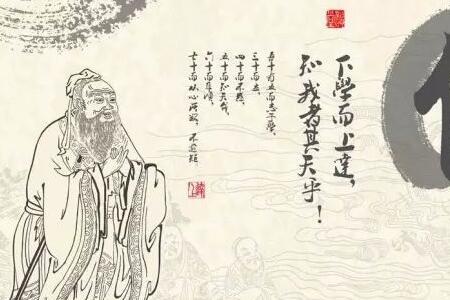 下學而上達，
知我者其天乎！
吾十有五而志于學，
三十而立，
四十而不惑，
五十而知天命，
六十而耳順，
七十而从心所欲，不逾矩。